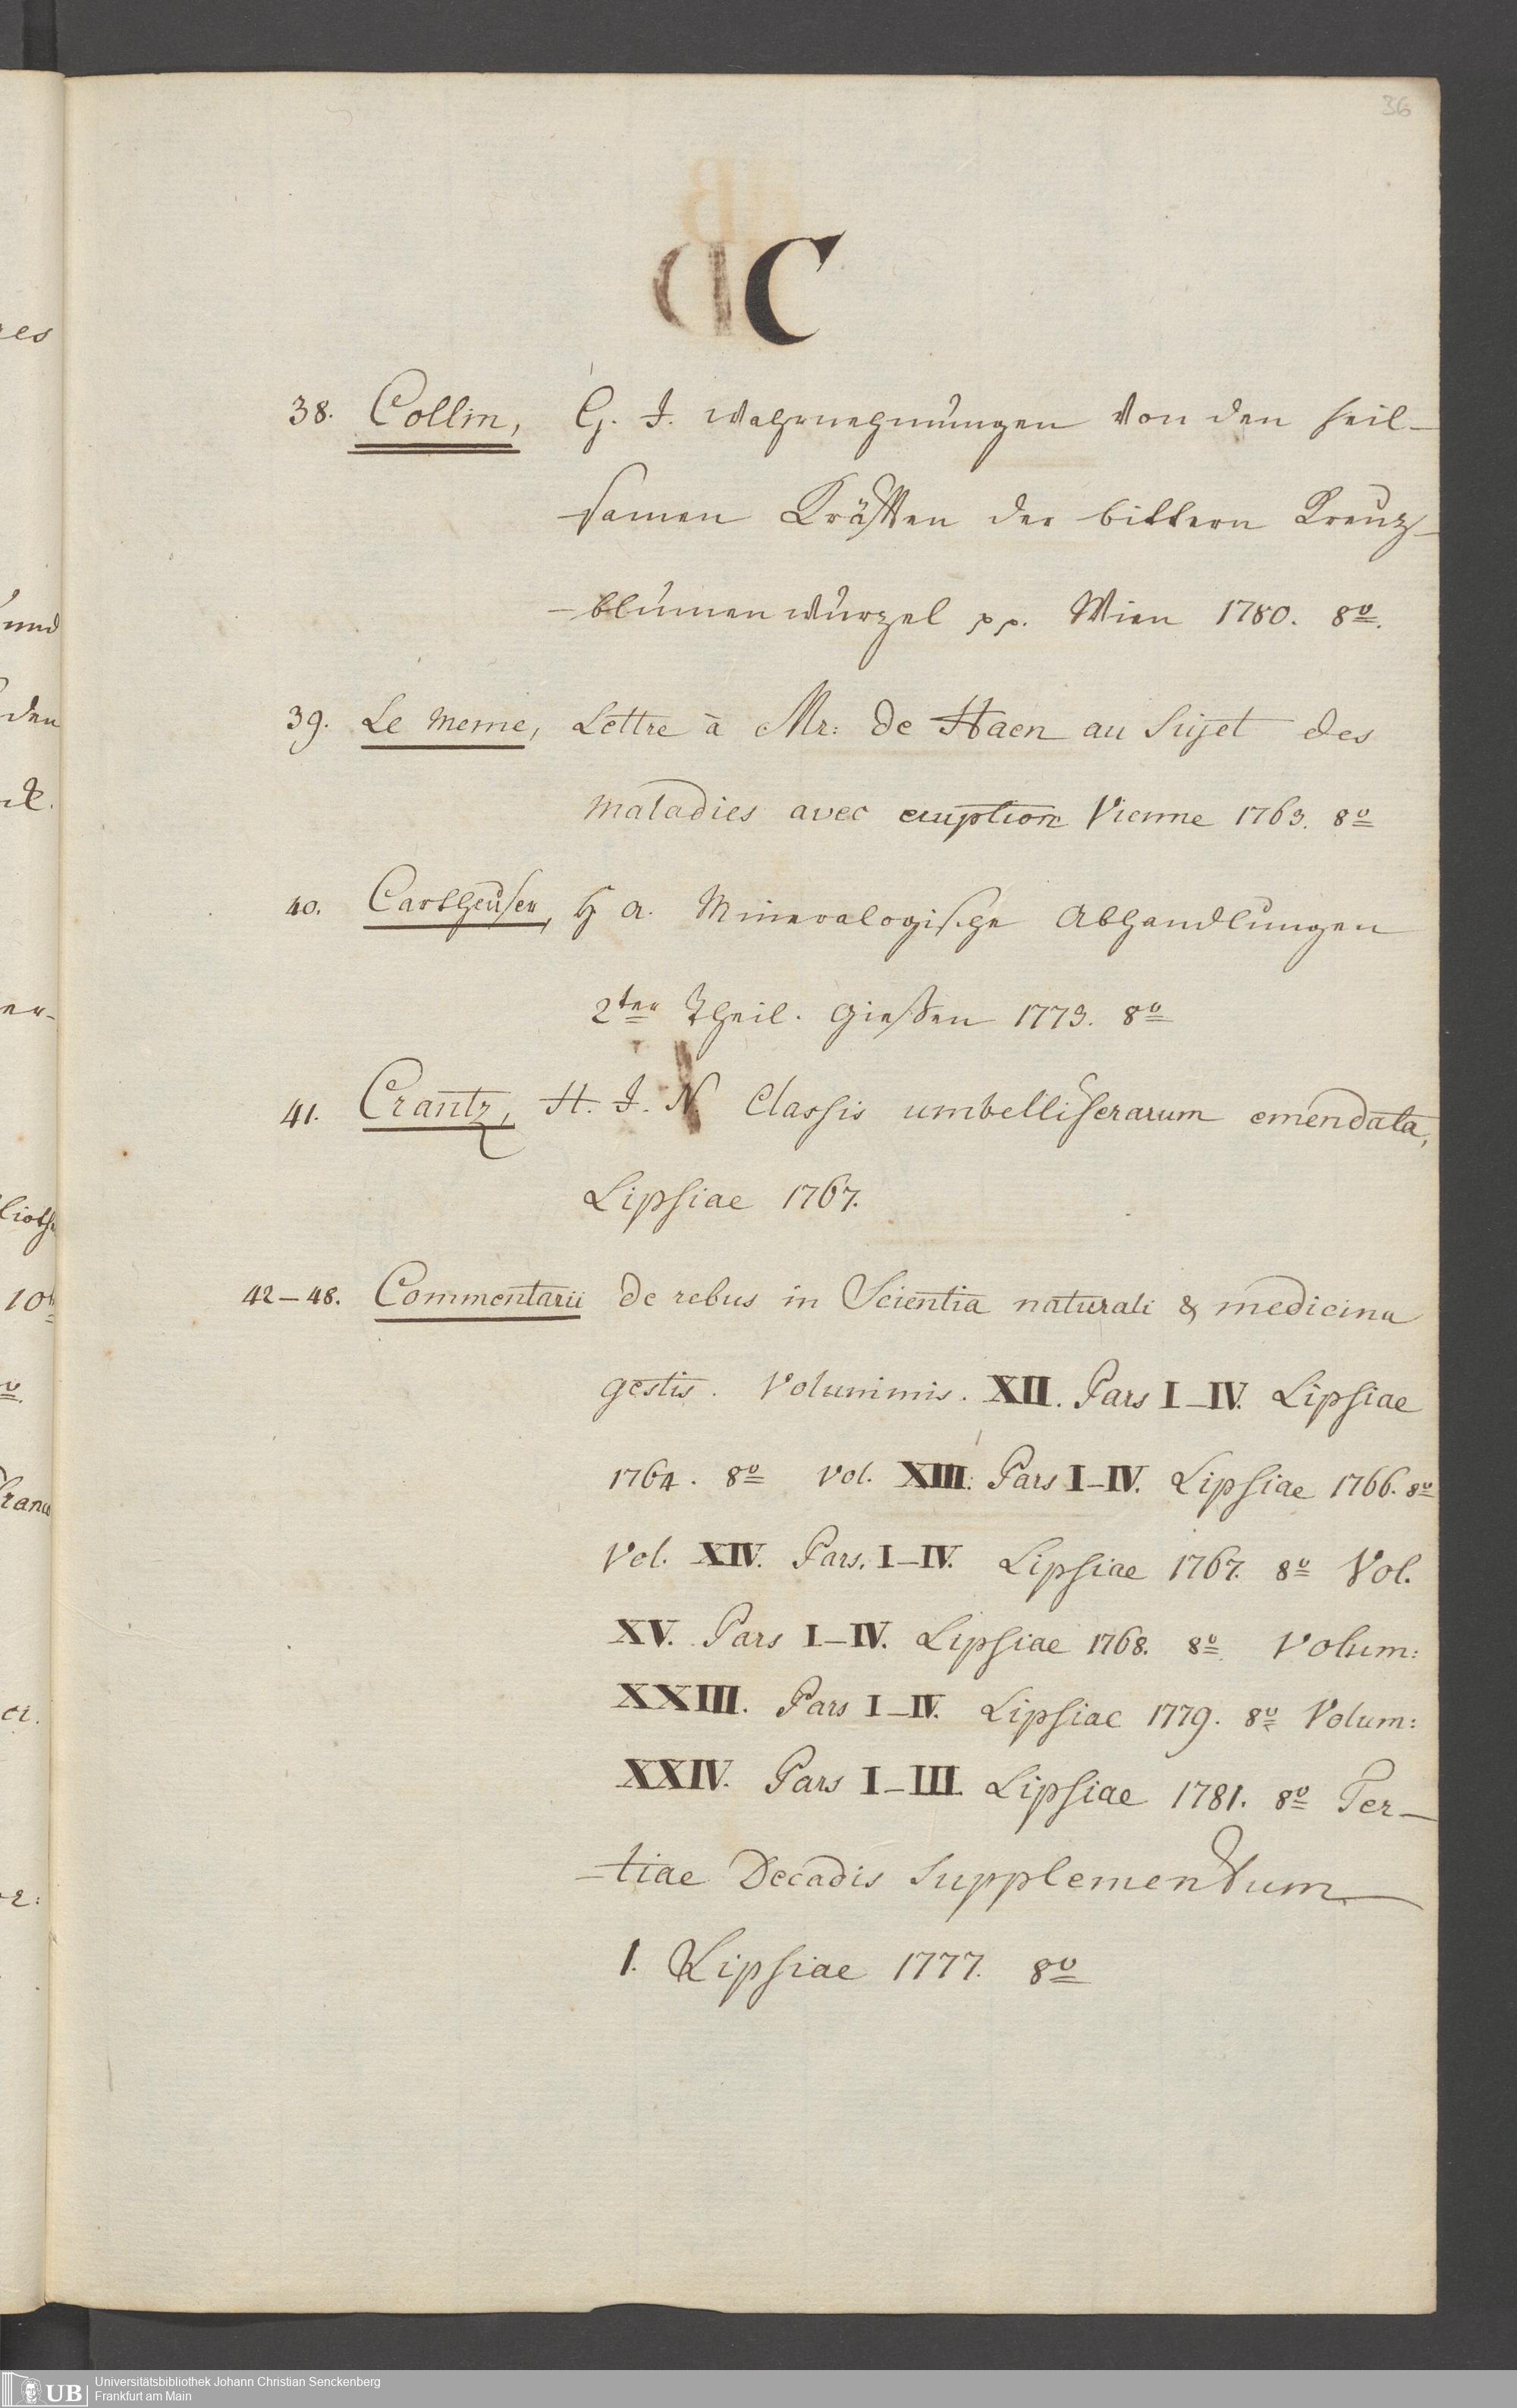 36
C
38. Collin, H. J. Wahrnehmungen von den heil-
samen Kräften der bittern Kreuz-
-blumenwurzel pp. Wien 1780. 8º.
39. Le meme, Lettre à Mr: de Haen au Sujet des
maladies avec eruption Vienne 1763. 8º
40. Cartheuser, F A. Mineralogische Abhandlungen
2ter Theil. Gießen 1773. 8º
41. Crantz, H. J. N Classis umbelliferarum emendata,
Lipsiae 1767.
42–48. Commentarii de rebus in Scientia naturali & medicina
gestis. Volumimis. XII. Pars I–IV. Lipsiae
1764. 8º vol. XIII: Pars I–IV. Lipsiae 1766. 8º
Vol. XIV. Pars. I–IV. Lipsiae 1767. 8º Vol.
XV. Pars I–IV. Lipsiae 1768. 8º. Volum:
XXIII. Pars I–IV. Lipsiae 1779. 8º Volum:
XXIV. Pars I–III. Lipsiae 1781. 8º Ter-
-tiae Decadis Supplementum
1. Lipsiae 1777. 8º
UB Universitätsbibliothek Johann Christian Senckenberg
Frankfurt am Main